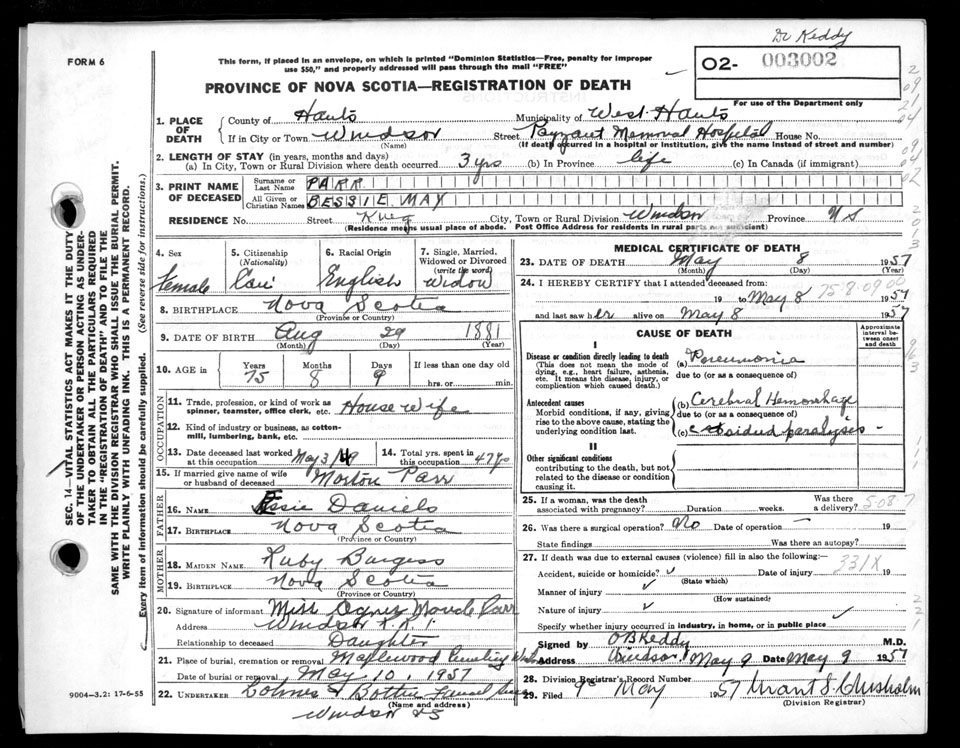 Dr Keddy
FORM 6
This form, if placed in an envelope, on which is printed "Dominion Statistics—Free, penalty for improper
use $50," and properly addressed will pass through the mail "FREE"
02- 003002
For use of the Department only
PROVINCE OF NOVA SCOTIA—REGISTRATION OF DEATH
1. PLACE OF DEATH County of Hants Municipality of West Hants
If in City or Town Windsor (Name) Street Payzant Memorial Hospital House No.
(If death occurred in a hospital or institution, give the name instead of street and number)
2. LENGTH OF STAY (in years, months and days)
(a) In City, Town or Rural Division where death occurred 3 yrs (b) In Province life (c) In Canada (if immigrant)
3. PRINT NAME OF DECEASED Surname or Last Name PARR
All Given or Christian Names BESSIE MAY
RESIDENCE No. Street King City, Town or Rural Division Windsor Province N S
(Residence means usual place of abode. Post Office Address for residents in rural parts not sufficient)
4. Sex Female
5. Citizenship (Nationality) Can
6. Racial Origin English
7. Single, Married, Widowed or Divorced (write the word) Widow
8. BIRTHPLACE Nova Scotia
(Province or Country)
9. DATE OF BIRTH Aug 29 1881
(Month) (Day) (Year)
10. AGE in Years 75 Months 8 Days 9 If less than one day old
hrs. or min.
OCCUPATION
11. Trade, profession, or kind of work as spinner, teamster, office clerk, etc. House Wife
12. Kind of industry or business, as cotton-mill, lumbering, bank, etc.
13. Date deceased last worked at this occupation May 3/49
14. Total yrs. spent in this occupation 47 yrs
15. If married give name of wife or husband of deceased Morton Parr
FATHER
16. NAME Essie Daniels
17. BIRTHPLACE Nova Scotia
(Province or Country)
MOTHER
18. MAIDEN NAME Ruby Burgess
19. BIRTHPLACE Nova Scotia
(Province or Country)
20. Signature of informant Miss Agnes Maude Parr
Address Windsor R.R 1.
Relationship to deceased Daughter
21. Place of burial, cremation or removal Maplewood Cemetery
Date of burial or removal May 10, 1957
22. UNDERTAKER Funeral
(Name and address)
Windsor NS
9004—3.2: 17-6-55
MEDICAL CERTIFICATE OF DEATH
23. DATE OF DEATH May 8 1957
(Month) (Day) (Year)
24. I HEREBY CERTIFY that I attended deceased from:
19 to May 8 1957
758-0900
and last saw her alive on May 8 1957
CAUSE OF DEATH
Approximate interval between onset and death
I
Disease or condition directly leading to death (a) Pneumonia
(This does not mean the mode of dying, e.g., heart failure, asthenia, etc. It means the disease, injury, or complication which caused death.)
due to (or as a consequence of)
Antecedent causes (b) Cerebral Hemorrhage
Morbid conditions, if any, giving rise to the above cause, stating the underlying condition last.
due to (or as a consequence of)
(c) sided paralysis -
II
Other significant conditions
contributing to the death, but not related to the disease or condition causing it.
25. If a woman, was the death associated with pregnancy? Duration weeks. Was there a delivery?
508 7
26. Was there surgical operation? No Date of operation — 19
State findings Was there an autopsy?
27. If death was due to external causes (violence) fill in also the following:—
331X
Accident, suicide or homicide? Date of injury 19
(State which)
Manner of injury
(How sustained)
Nature of injury
Specify whether injury occurred in industry, in home, or in public place
Signed by O B Keddy M.D.
Address Windsor May 9 Date May 9 1957
28. Division Registrar's Record Number
29. Filed 9 May 1957 Grant S. Chisholm
(Division Registrar)
SEC. 14—VITAL STATISTICS ACT MAKES IT THE DUTY
OF THE UNDERTAKER OR PERSON ACTING AS UNDER-
TAKER TO OBTAIN ALL THE PARTICULARS REQUIRED
IN THE "REGISTRATION OF DEATH" AND TO FILE IT
WITH THE DIVISION REGISTRAR WHO SHALL ISSUE THE BURIAL PERMIT.
WRITE PLAINLY WITH UNFADING INK. THIS IS A PERMANENT RECORD.
Every item of information should be carefully supplied. (See reverse side for instructions.)